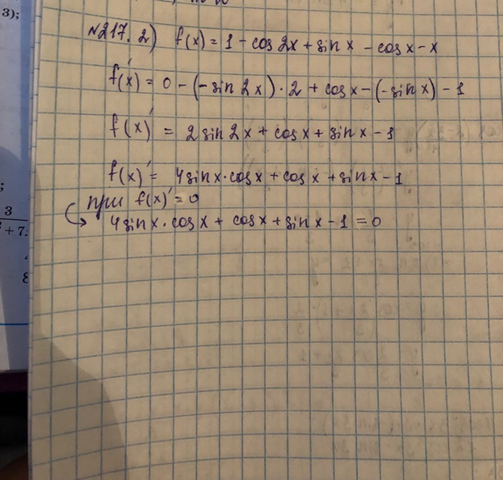 3);
№217. 2) f(x) = 1 - cos2x + sinx - cosx - x
f(x)' = 0 - (-sin2x)·2 + cosx - (-sinx) - 1
f(x)' = 2sin2x + cosx + sinx - 1
f(x)' = 4sinx·cosx + cosx + sinx - 1
при f(x)' = 0
4sinx·cosx + cosx + sinx - 1 = 0
;
3
+ 7